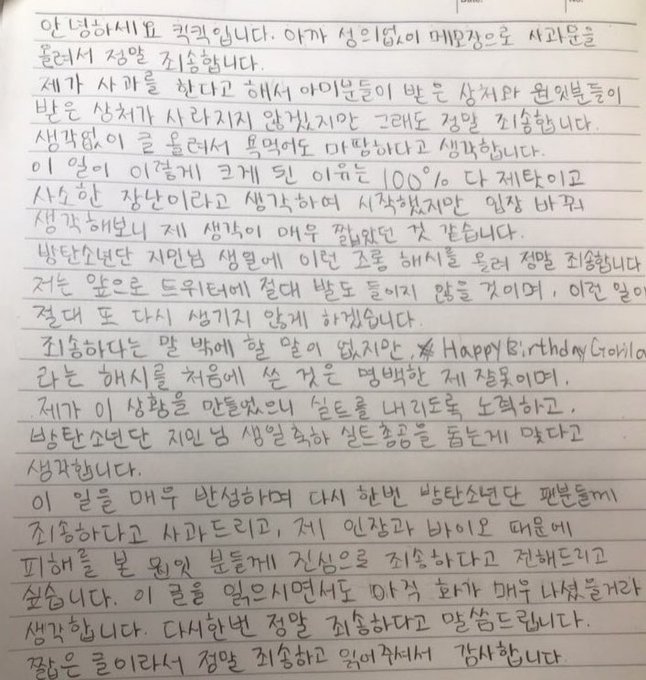 안녕하세요 퀵퀵입니다. 아까 성의없이 메모장으로 사과문을
올려서 정말 죄송합니다.
제가 사과를 한다고 해서 아미분들이 받은 상처와 원잇분들이
받은 상처가 사라지지 않겠지만 그래도 정말 죄송합니다.
생각없이 글 올려서 욕먹어도 마땅하다고 생각합니다.
이 일이 이렇게 크게 된 이유는 100% 다 제탓이고
사소한 장난이라고 생각하여 시작했지만 입장 바꿔
생각해보니 제 생각이 매우 짧았던 것 같습니다.
방탄소년단 지민님 생일에 이런 조롱 해시를 올려 정말 죄송합니다
저는 앞으로 트위터에 절대 발도 들이지 않을 것이며, 이런 일이
절대 또 다시 생기지 않게 하겠습니다.
죄송하다는 말 밖에 할 말이 없지만, #HappyBirthdayGorila
라는 해시를 처음에 쓴 것은 명백한 제 잘못이며,
제가 이 상황을 만들었으니 실트를 내리도록 노력하고,
방탄소년단 지민님 생일축하 실트총공을 돕는게 맞다고
생각합니다.
이 일을 매우 반성하며 다시 한번 방탄소년단 팬분들께
죄송하다고 사과드리고, 제 인장과 바이오 때문에
피해를 본 원잇 분들께 진심으로 죄송하다고 전해드리고
싶습니다. 이 글을 읽으시면서도 아직 화가 매우 나셨을거라
생각합니다. 다시한번 정말 죄송하다고 말씀드립니다.
짧은 글이라서 정말 죄송하고 읽어주셔서 감사합니다.